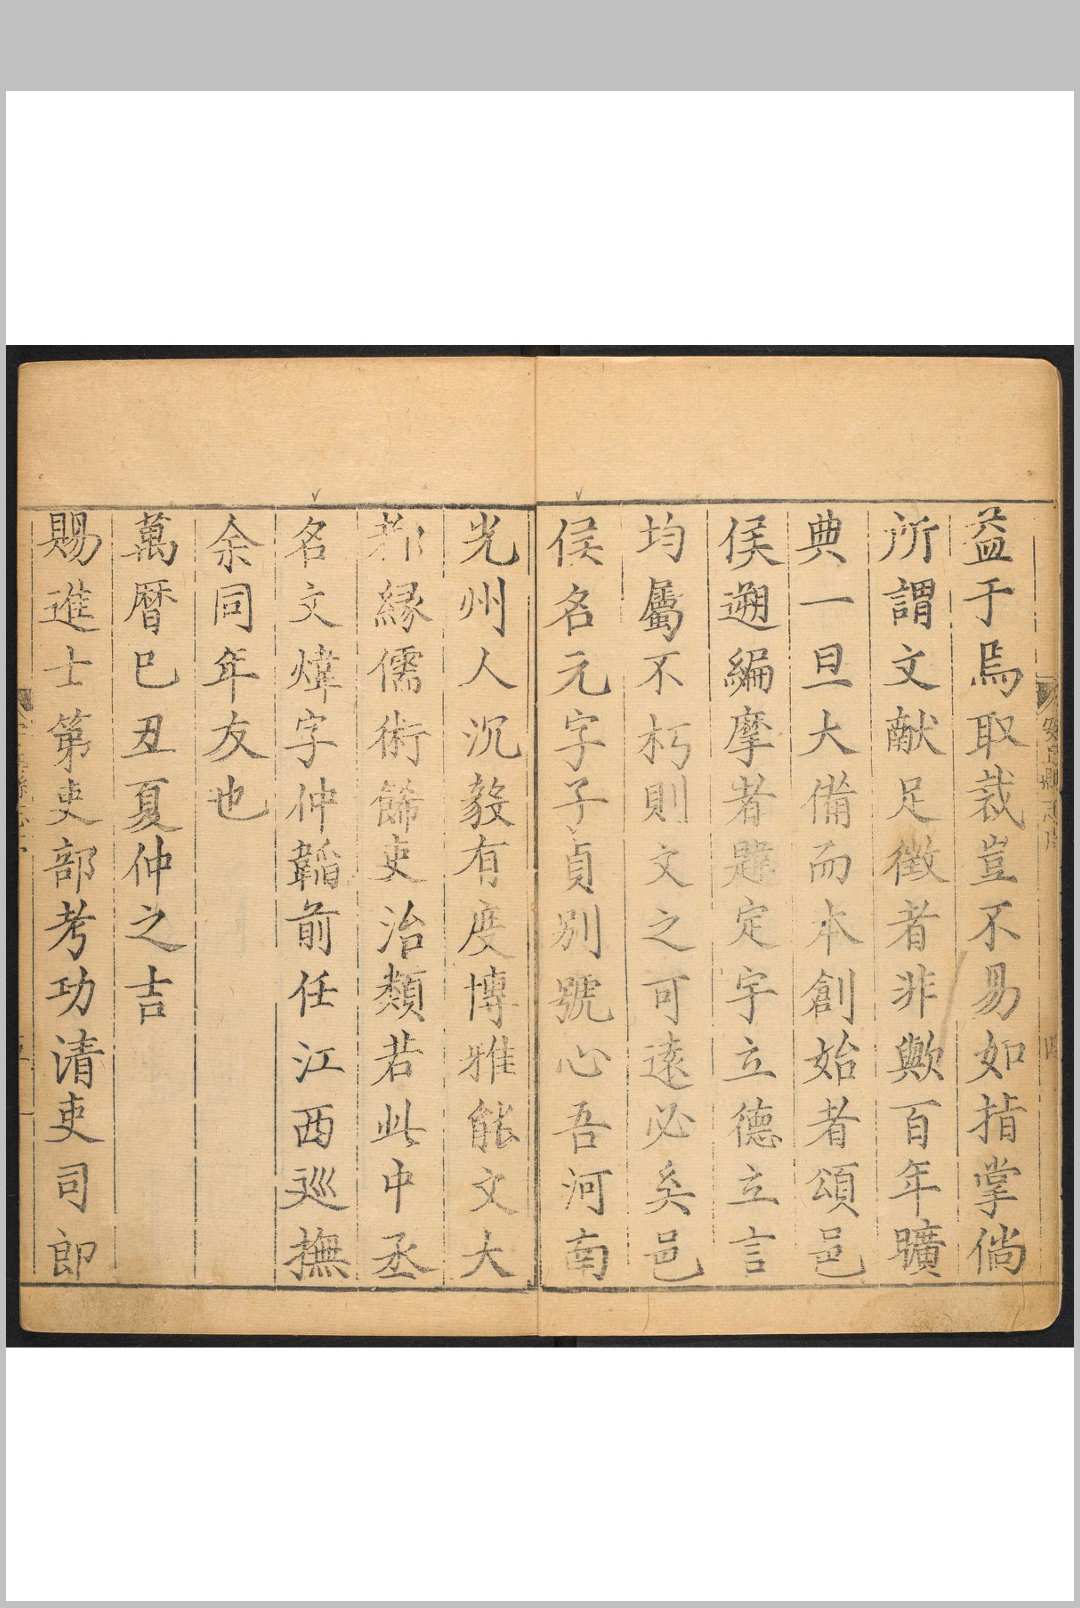 益于焉取裁豈不易如指掌倘
所謂文献足徴者非歟百年曠
典一旦大備而本創始者頌邑
侯遡編摩者韙定宇立德立言
均屬不朽則文之可遠必矣邑
侯名元字子貞别號心吾河南
光州人沉毅有度博雅能文大
都縁儒術餙吏治類若此中丞
名文煒字仲韜前任江西巡撫
余同年友也
萬暦巳丑夏仲之吉
賜進士第吏部考功清吏司郎